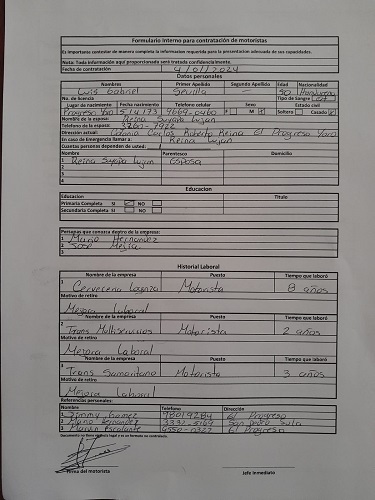 Formulario Interno para contratación de motoristas
Es importante contestar de manera completa la informacion requerida para la presentacion adecuada de sus capacidades.
Nota: Toda información aquí proporcionada será tratada confidencialmente.
Fecha de contratación
Datos personales
Nombres Primer Apellido Segundo Apellido Edad Nacionalidad
Luis Gabriel Sevilla - 50 Hondureña
No. de licencia Tipo de Sangre
Lugar de nacimiento Fecha nacimiento Telefono celular Sexo Estado civil
Progreso Yoro 5/4/173 9669-0460 F M Soltero Casado
Nombre de la esposa: Reina Suyapa Lujan
Telefono de la esposa: 3260-7922
Direccion actual: Colonia Carlos Roberto Reina El Progreso Yoro
En caso de Emergencia llamar a: Reina Lujan
Cuantas personas dependen de usted: 1
Nombre Parentesco Domicilio
1 Reina Suyapa Lujan Esposa
2
3
4
Educacion
Educacion Titulo
Primaria Completa SI NO
Secundaria Completa SI NO
Personas que conozca dentro de la empresa:
1 Mario Hernandez
2 Jose Mejia
3
Historial Laboral
Nombre de la empresa Puesto Tiempo que laboró
1 Cerveceria Motorista 8 años
Motivo de retiro
Mejora Laboral
Nombre de la empresa Puesto Tiempo que laboró
2 Trans Multiservicios Motorista 2 años
Motivo de retiro
Mejora Laboral
Nombre de la empresa Puesto Tiempo que laboró
3 Trans Samaritano Motorista 3 años
Motivo de retiro
Mejora Laboral
Referencias personales:
Nombre Telefono Dirección
1 Jimmy Gomez 98019284 El Progreso
2 Mario Hernandez 3332-5169 San Pedro Sula
3 Marvin Escalante El Progreso
Firma del motorista Jefe Inmediato